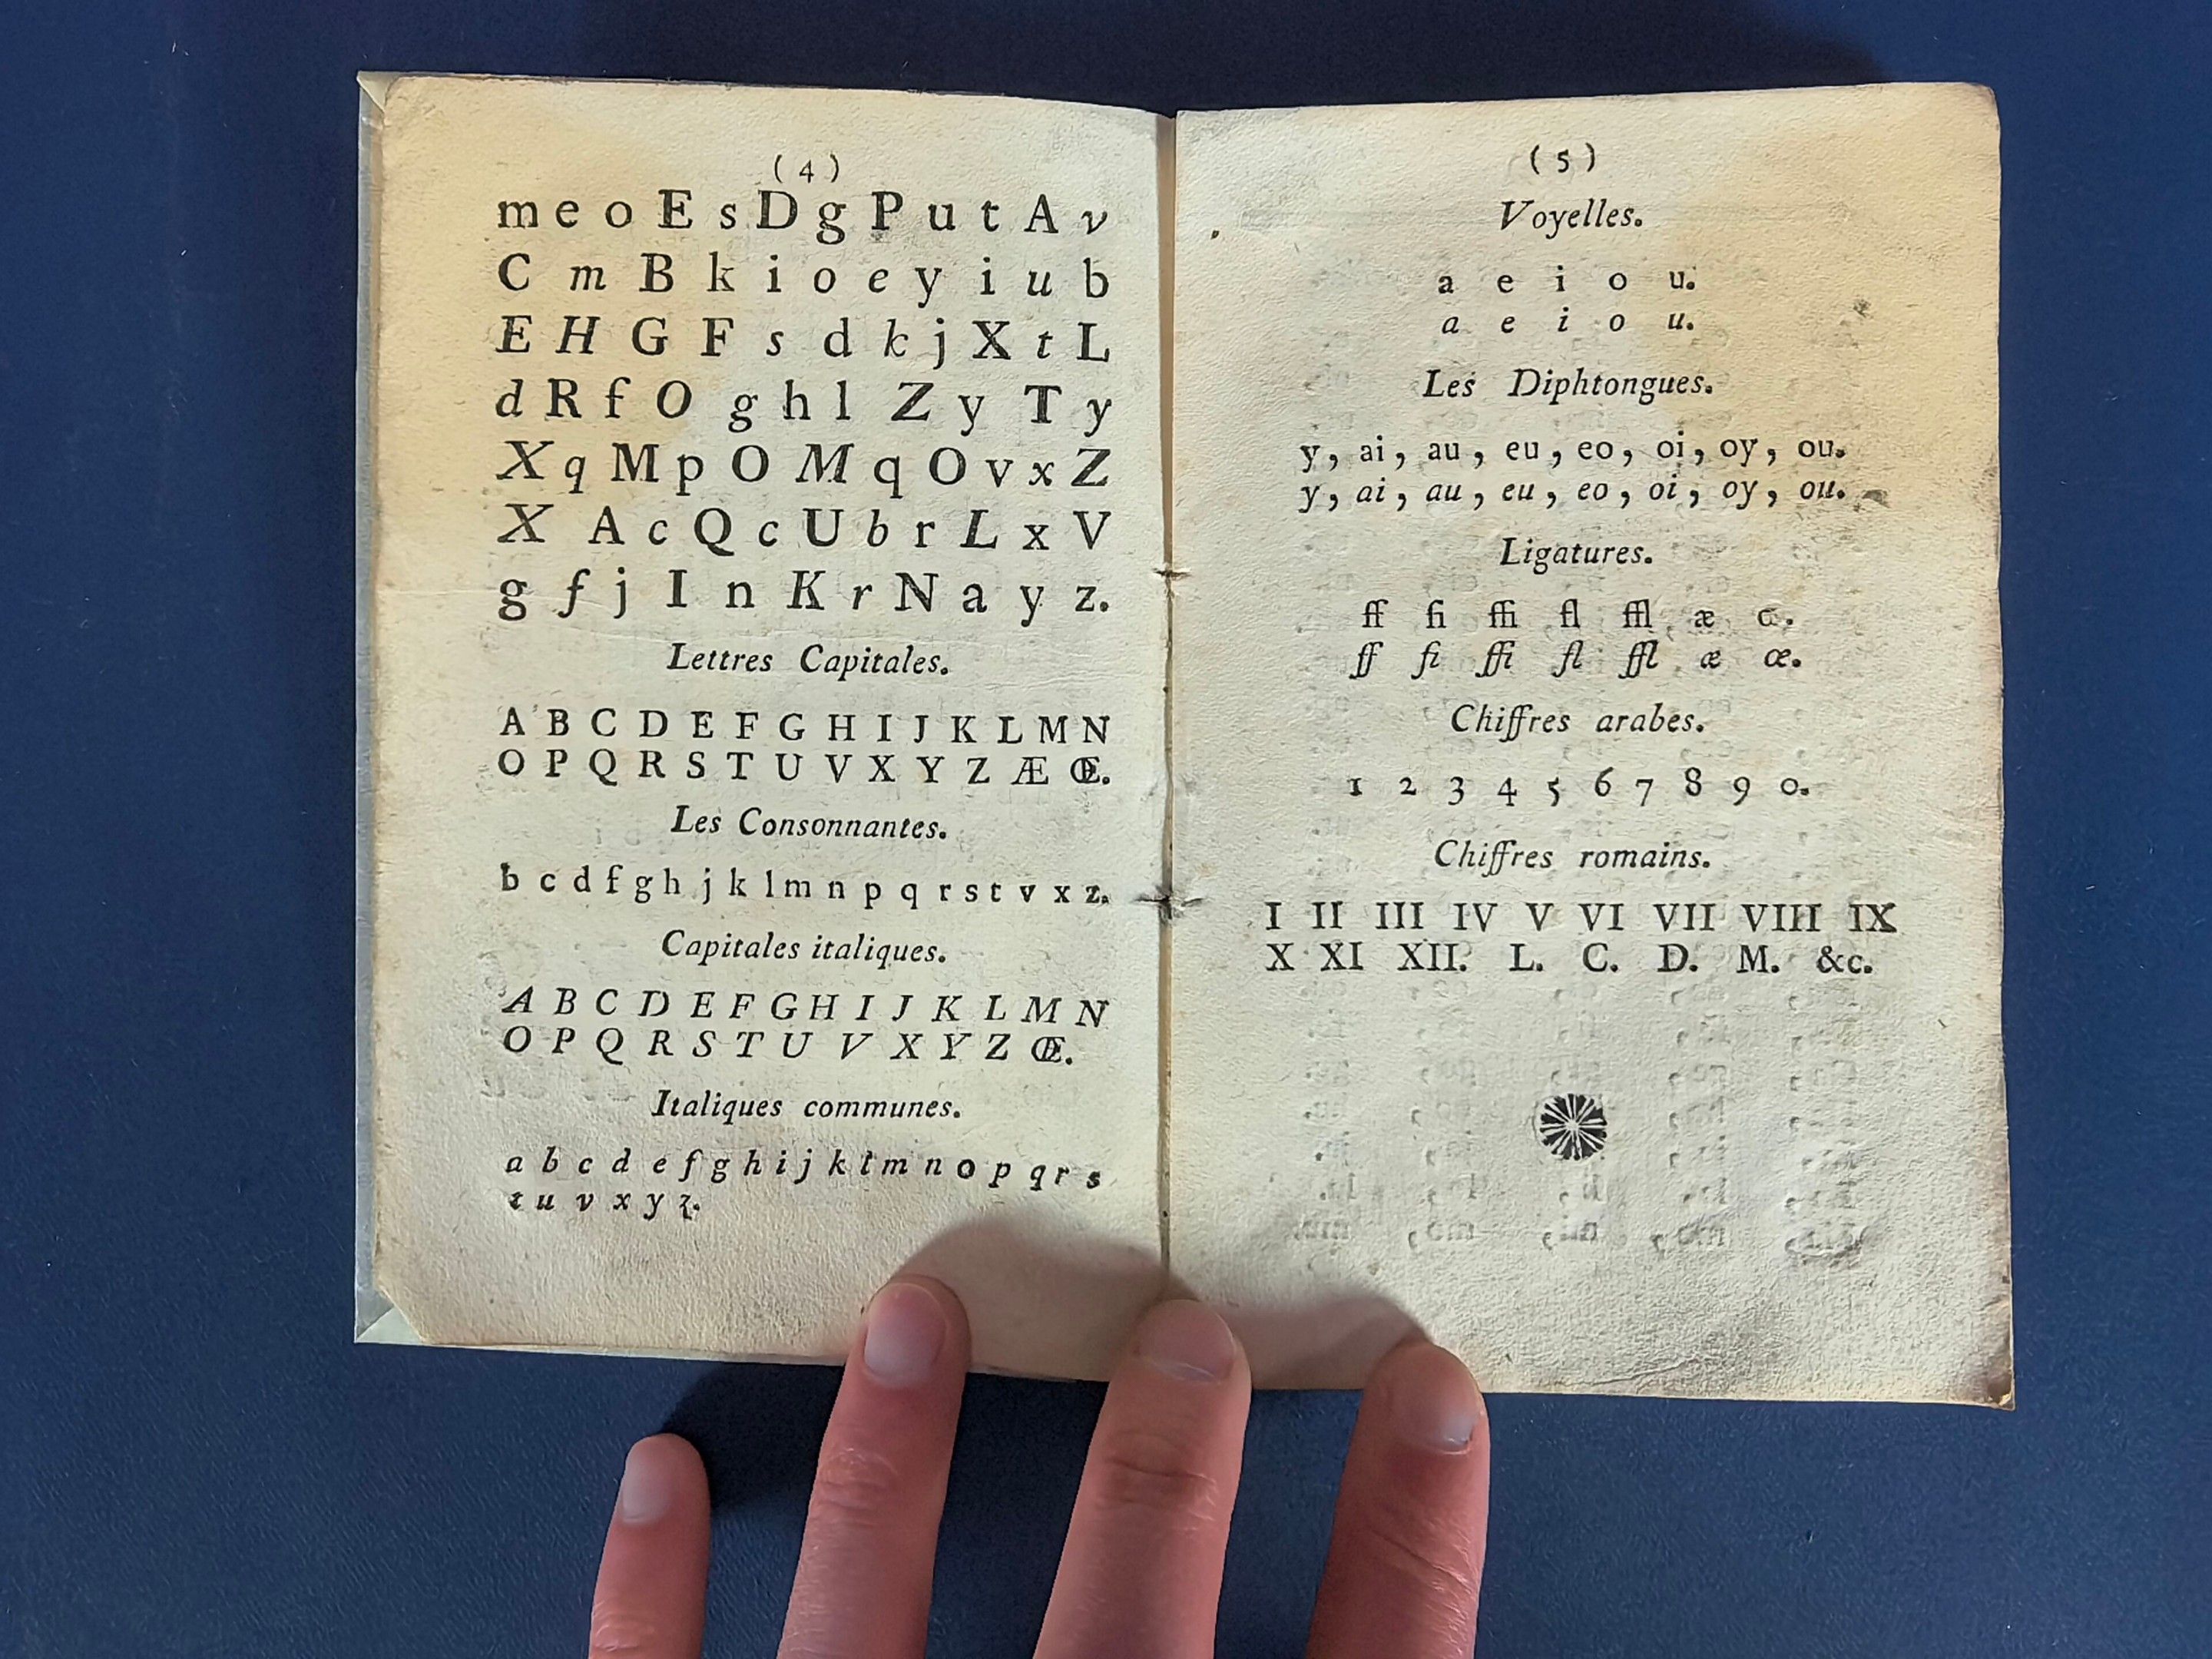 ( 4 )
m e o E s D g P u t A v
C m B k i o e y i u b
E H G F s d k j X t L
d R f O g h l Z y T y
X q M p O M q O v x Z
X A c Q c U b r L x V
g f j I n K r N a y z.
Lettres Capitales.
A B C D E F G H I J K L M N
O P Q R S T U V X Y Z Æ Œ.
Les Consonnantes.
b c d f g h j k l m n p q r s t v x z.
Capitales italiques.
A B C D E F G H I J K L M N
O P Q R S T U V X Y Z Œ.
Italiques communes.
a b c d e f g h i j k l m n o p q r s
t u v x y z.
( 5 )
Voyelles.
a e i o u.
a e i o u.
Les Diphtongues.
y, ai, au, eu, eo, oi, oy, ou.
y, ai, au, eu, eo, oi, oy, ou.
Ligatures.
ff fi ffi fl ffl æ œ.
ff fi ffi fl ffl æ œ.
Chiffres arabes.
1 2 3 4 5 6 7 8 9 0.
Chiffres romains.
I II III IV V VI VII VIII IX
X XI XII. L. C. D. M. &c.